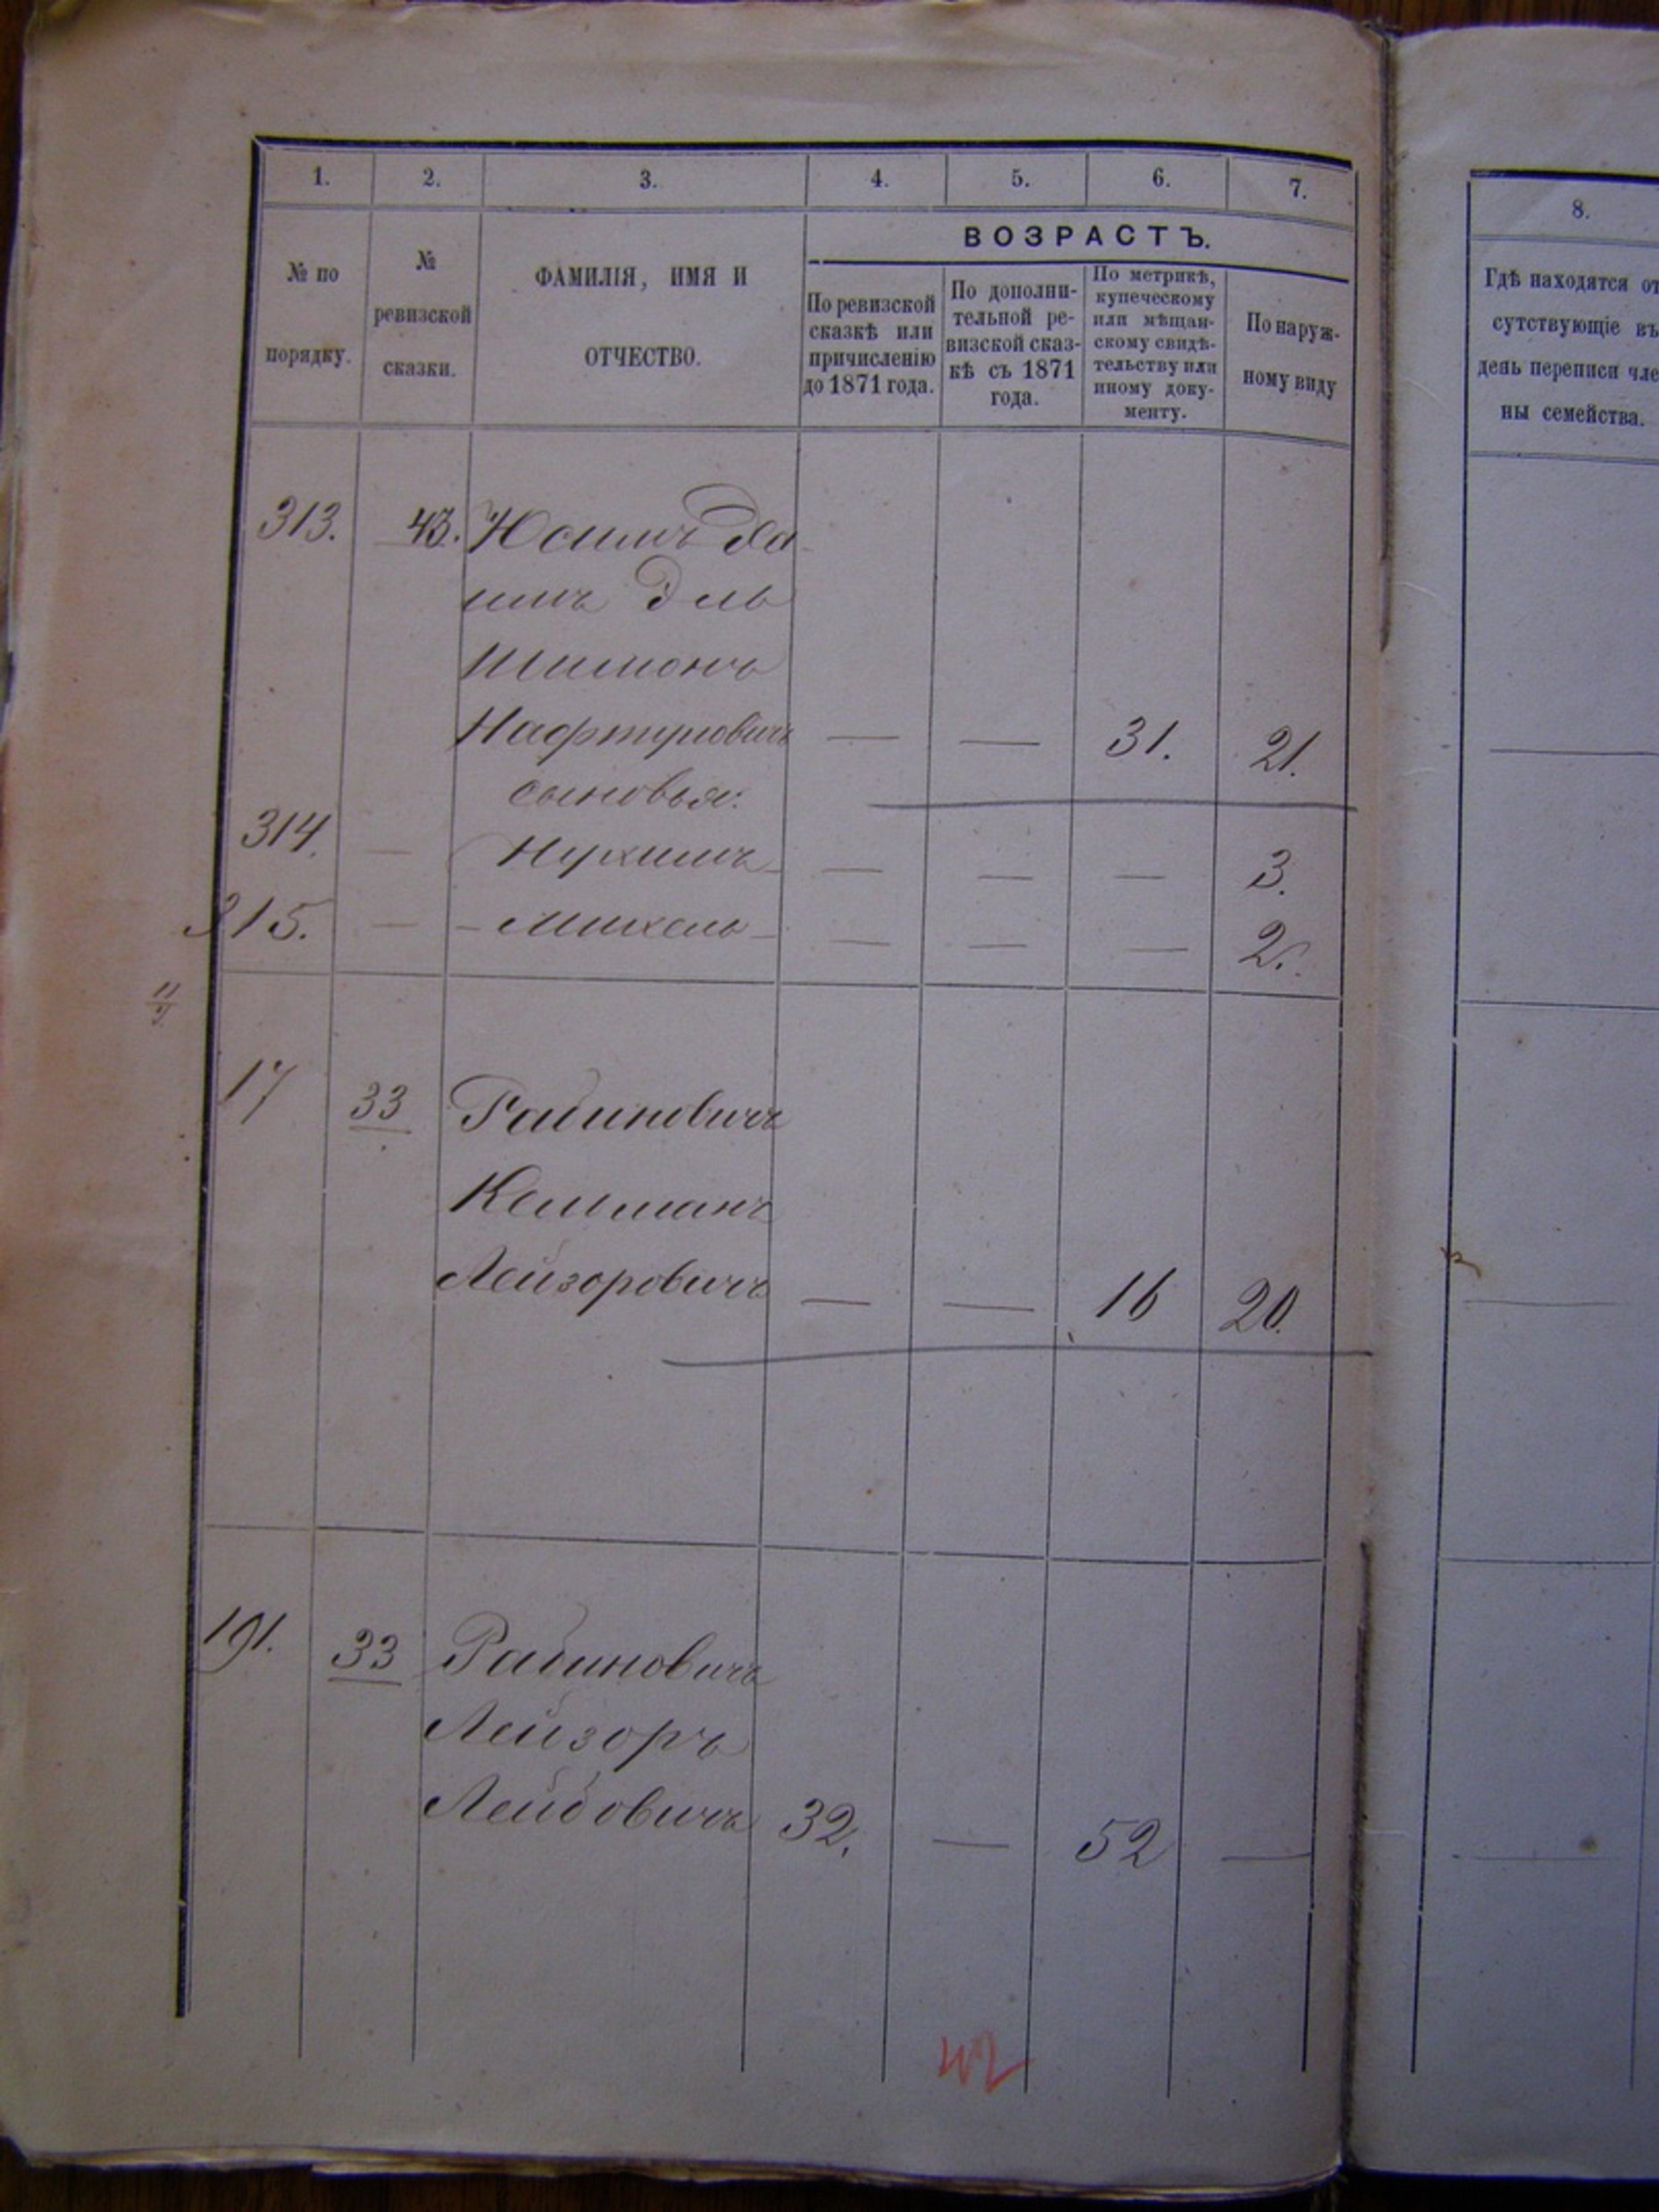 1. 2. 3. 4. 5. 6. 7.
№ по порядку.
№ ревизской сказки.
ФАМИЛІЯ, ИМЯ И
ОТЧЕСТВО.
ВОЗРАСТЪ.
По ревизской
сказкѣ или
причисленію
до 1871 года.
По дополни-
тельной ре-
визской сказ-
кѣ съ 1871
года.
По метрикѣ,
купеческому
или мѣщан-
скому свидѣ-
тельству или
иному доку-
менту.
По наруж-
ному виду
8.
Гдѣ находятся от
сутствующіе въ
день переписи чле
ны семейства.
313. 43.
Эль
Шимонъ
Нафтуловичъ — — 31. 21.
сыновья:
314. — Нухимъ — — — 3.
315. — Михель — — — 2.
17 33 Рабиновичъ
Кельманъ
Лейзоровичъ — — 16 20.
191. 33 Рабиновичъ
Лейзоръ
Лейбовичъ 32. — 52 —
42